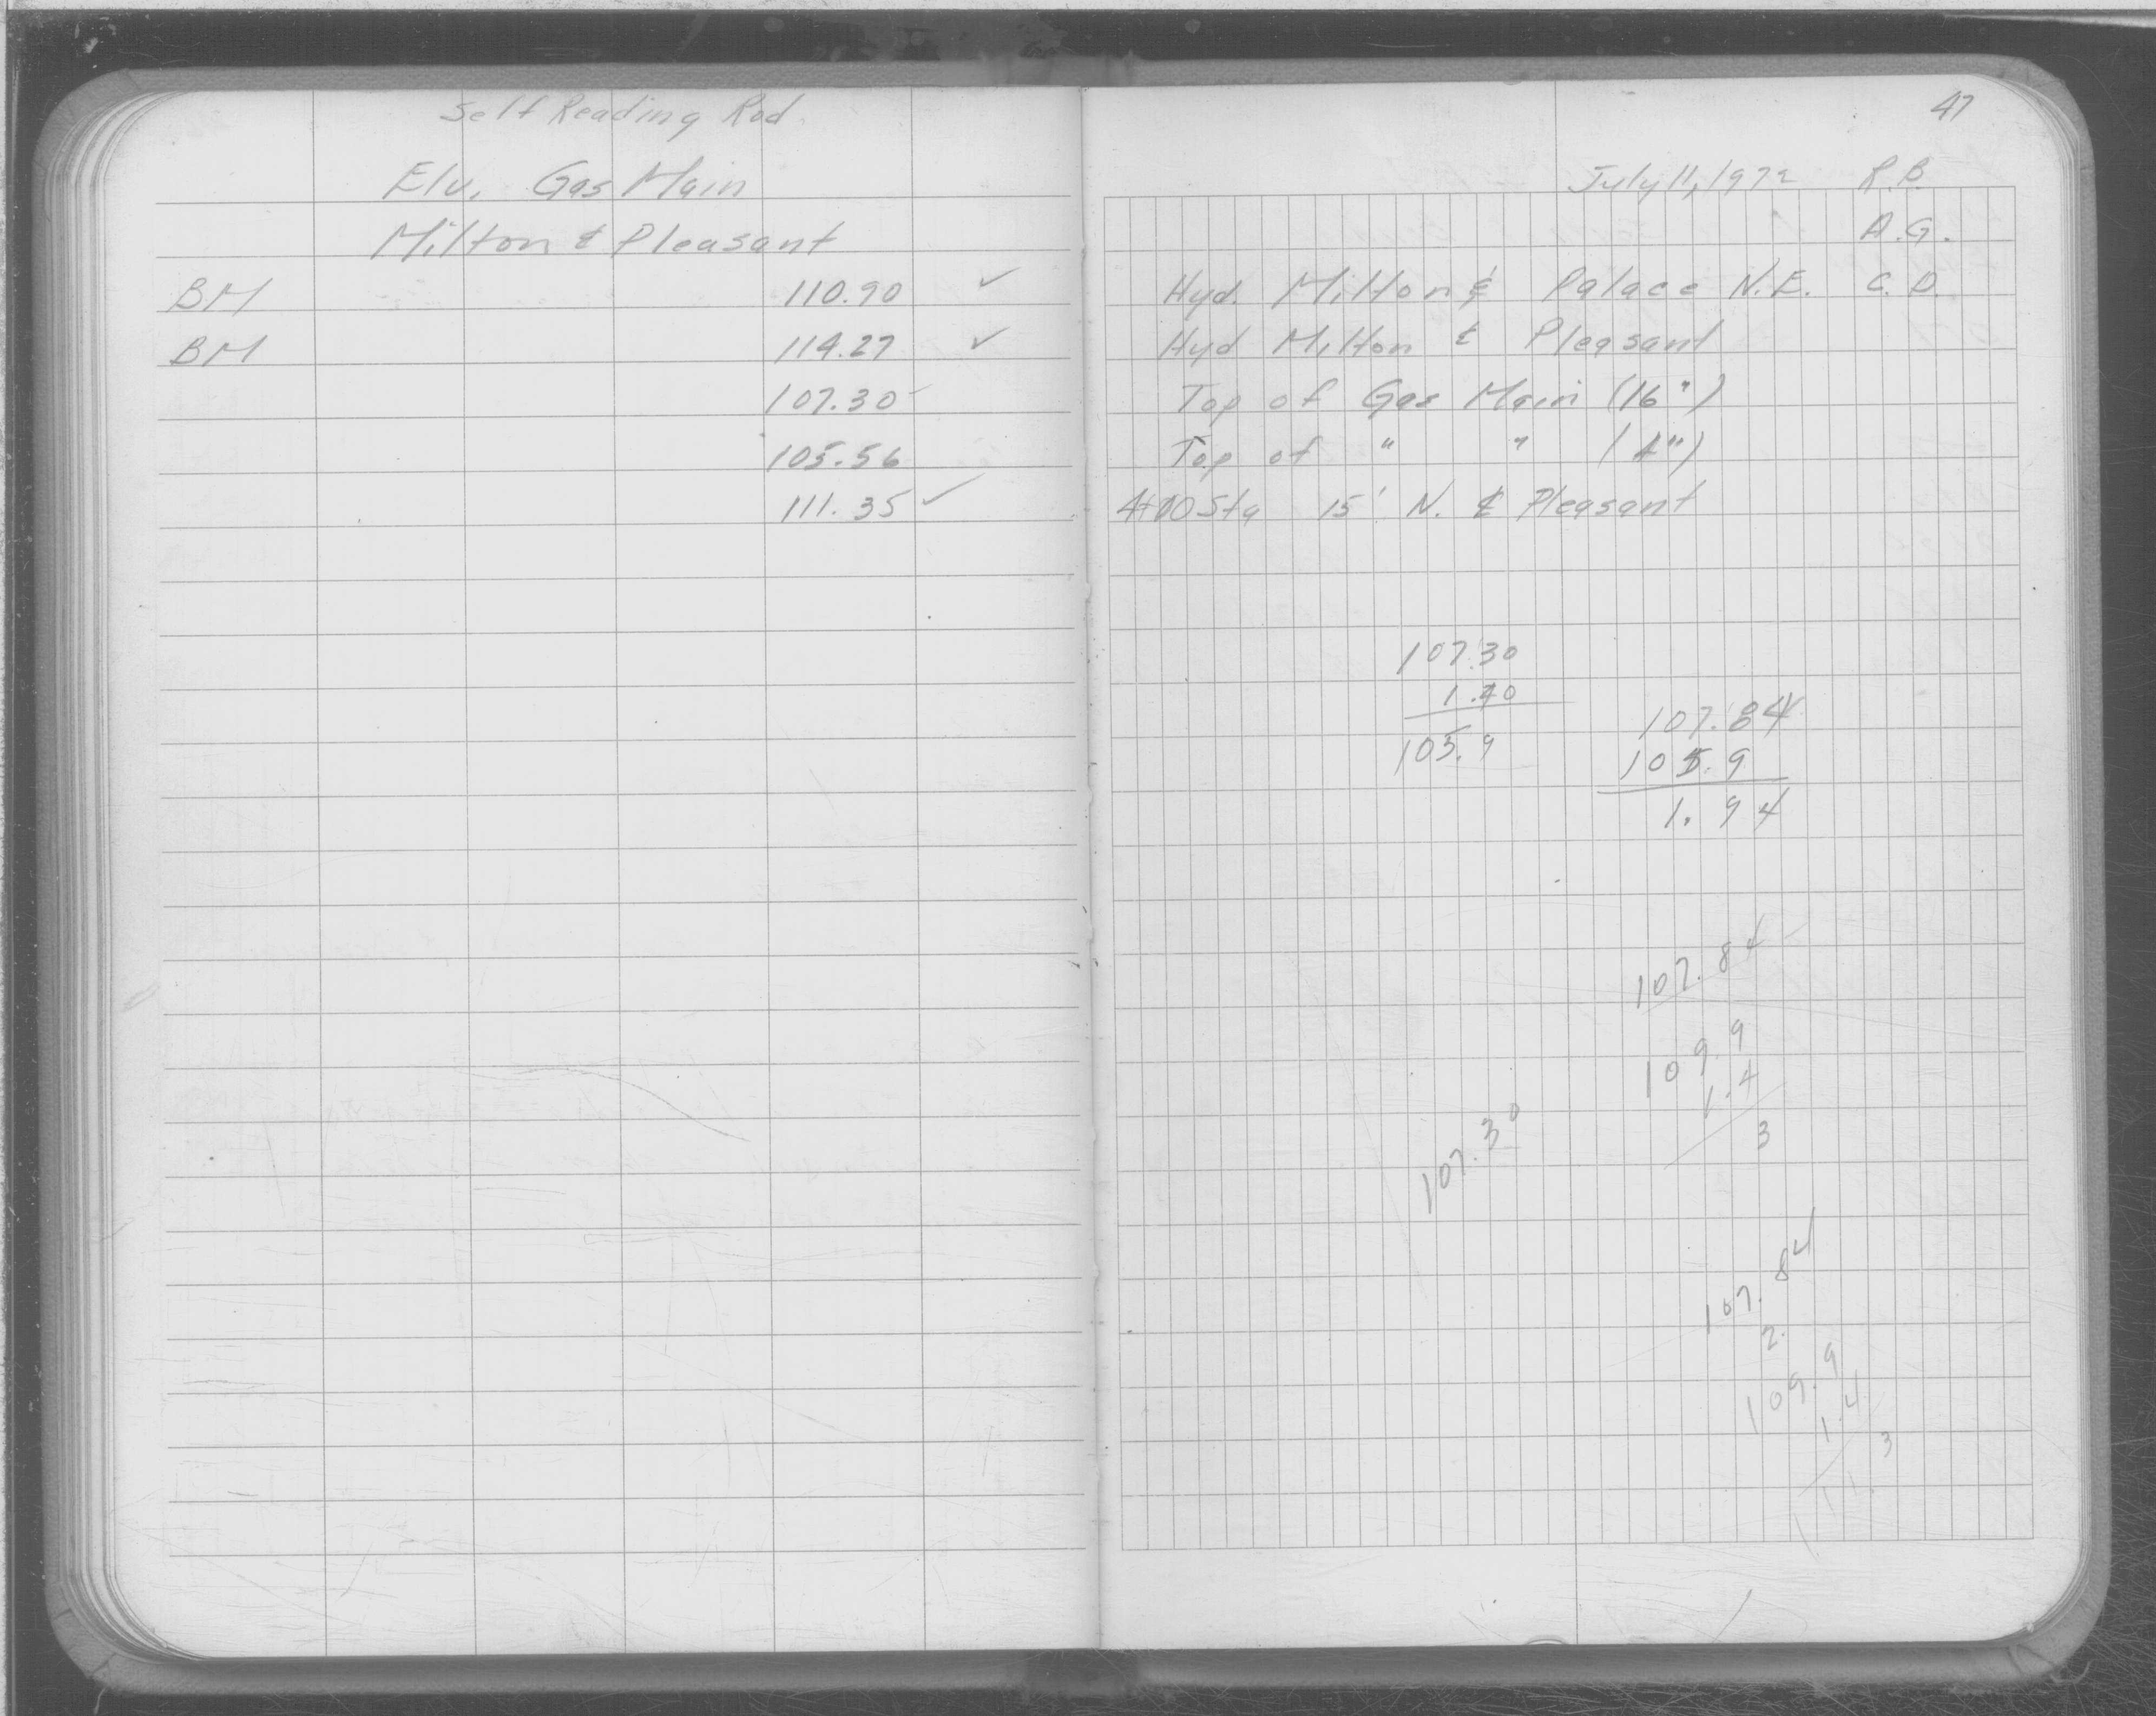 Self Reading Rod
Elv. Gas Main
Milton & Pleasant
BM 110.90 ✓
BM 114.27 ✓
107.30
105.56
111.35 ✓
47
July 11, 1972 R.B.
A.G.
Hyd. Milton & Palace N.E. C.D.
Hyd Milton & Pleasant
Top of Gas Main (16")
Top of " " (4")
Sta 15' N. ℄ Pleasant
107.30
1.40
105.9
107.84
105.9
1.94
107.84
109.9
1.4
3
107.30
107.84
2.
109.9
1.4
3